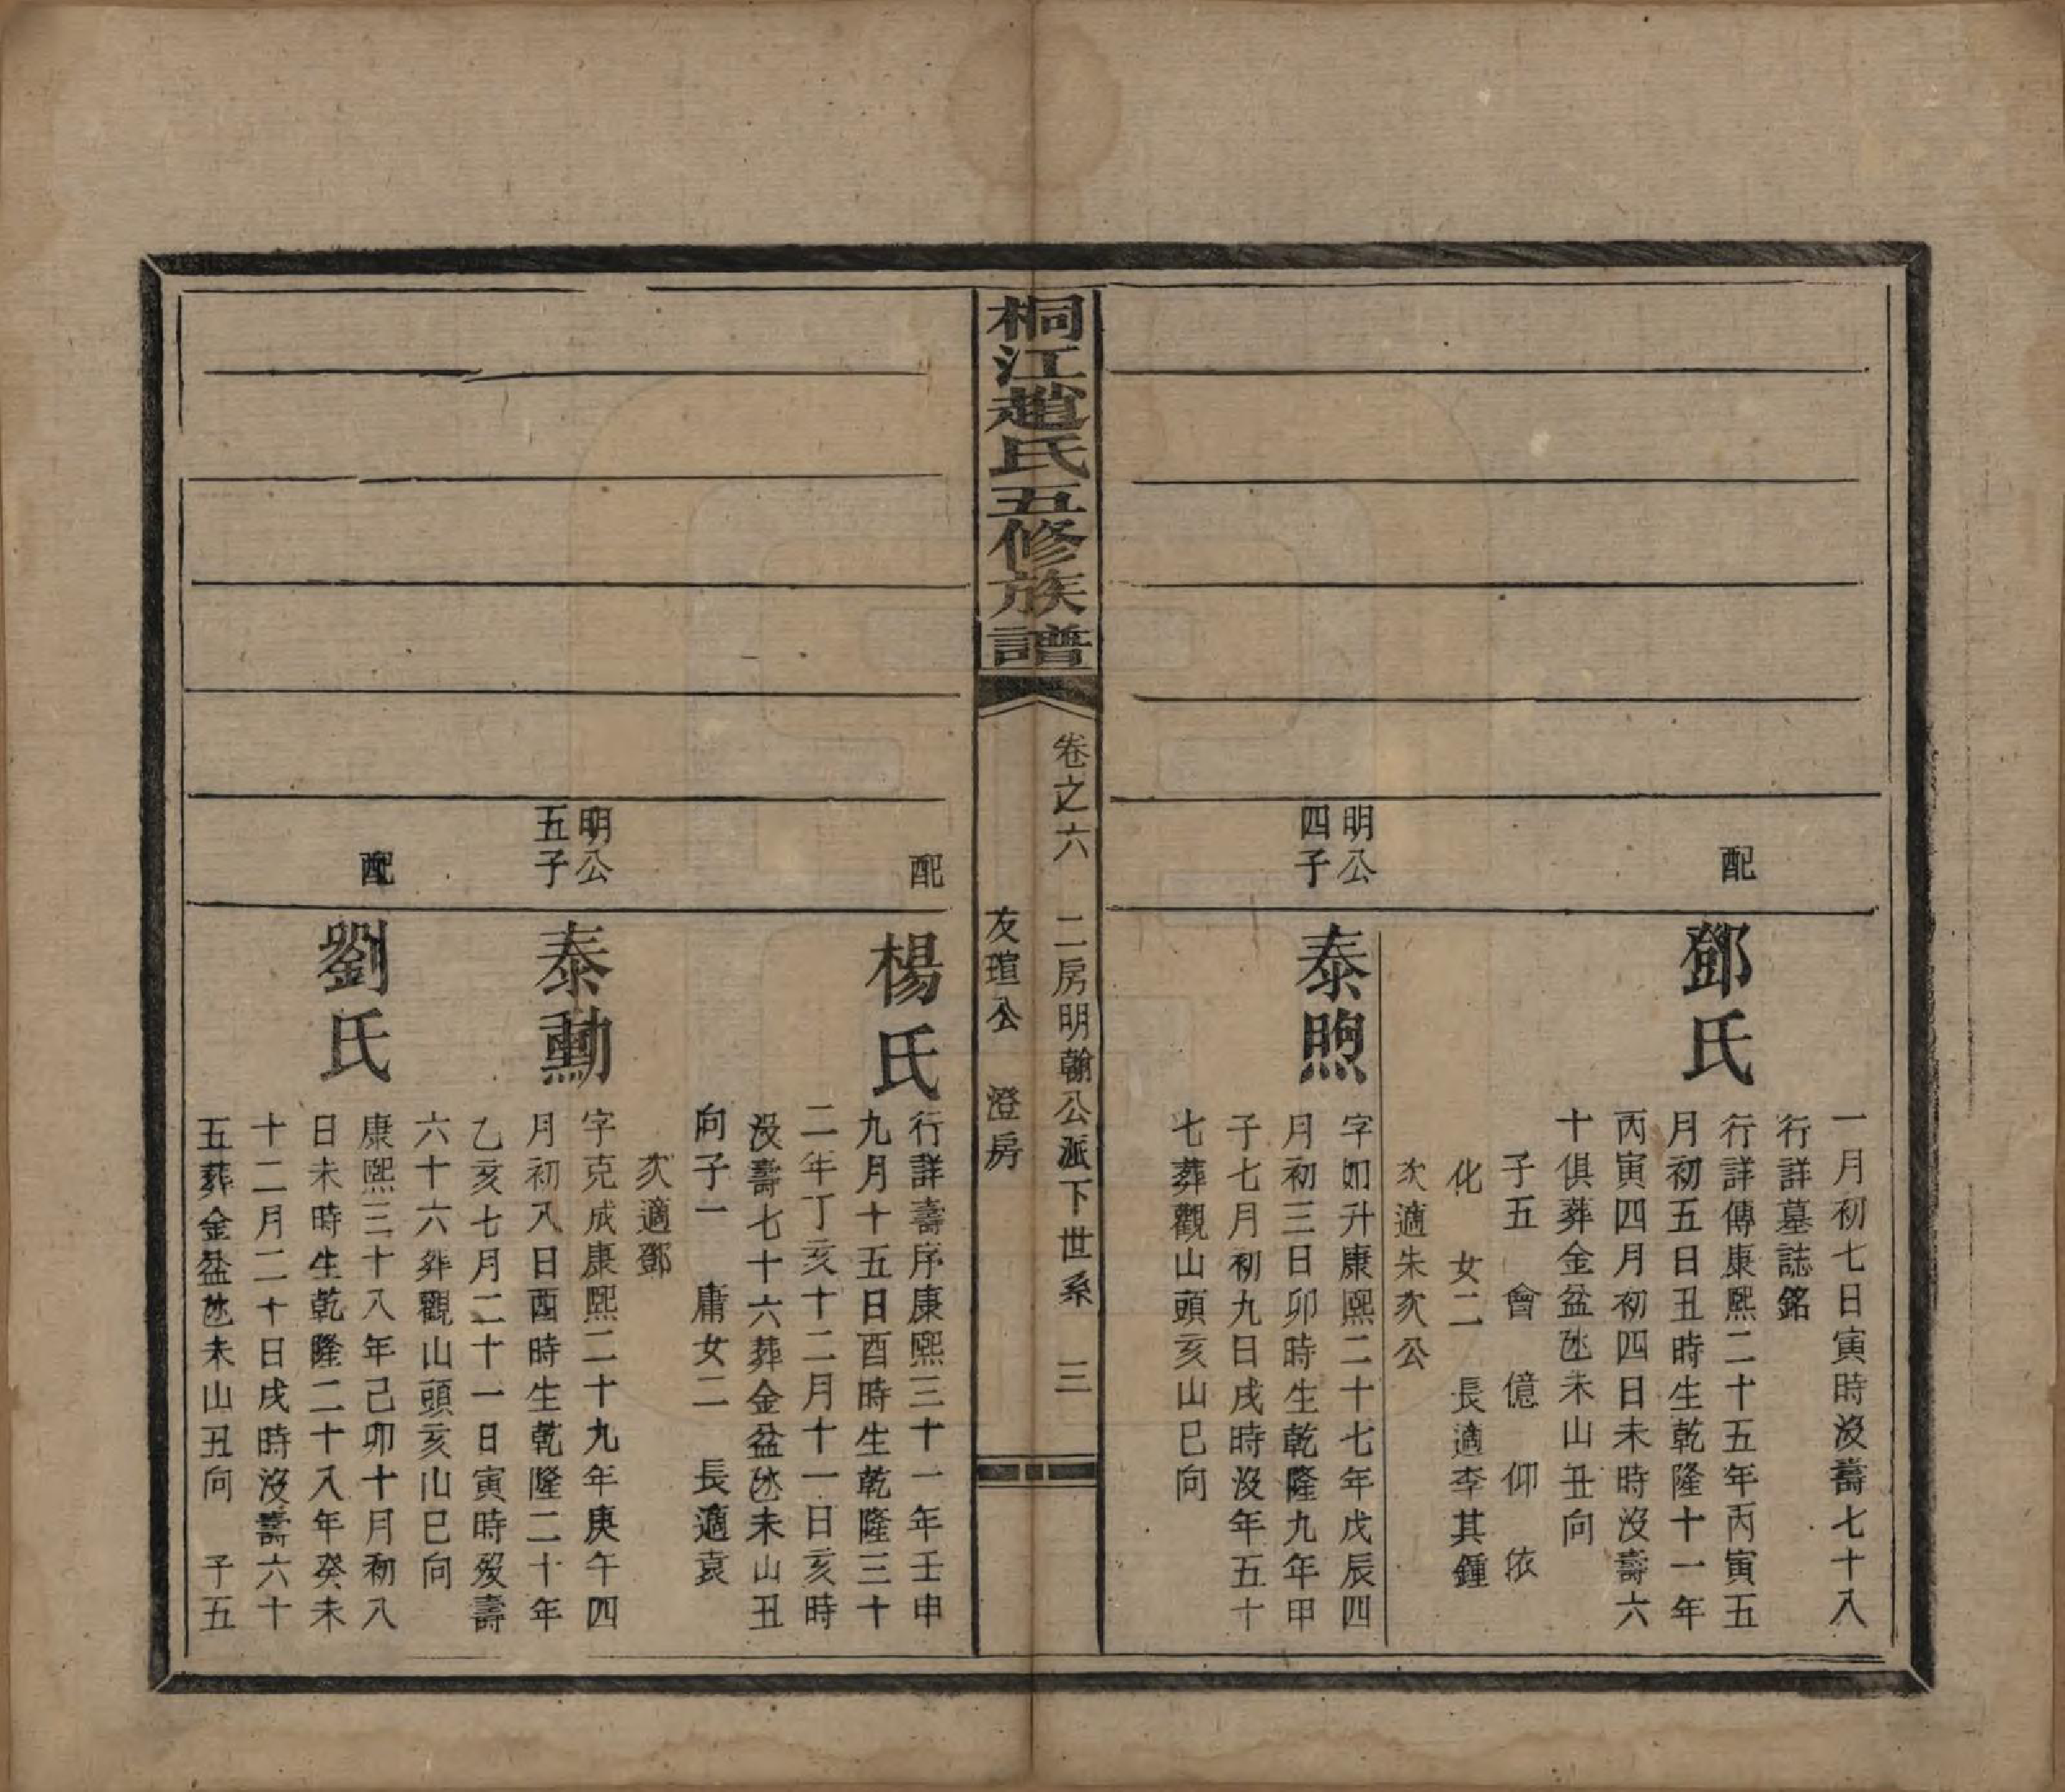 一月初七日寅時沒壽七十八
行詳墓誌銘
配
鄧氏
行詳傳康熙二十五年丙寅五
月初五日丑時生乾隆十一年
丙寅四月初四日未時沒壽六
十俱葬金盆氹未山丑向
子五 會 億 仰 依
化 女二 長適李其鍾
次適朱次公
明公
四子
泰煦
字如升康熙二十七年戊辰四
月初三日卯時生乾隆九年甲
子七月初九日戌時沒年五十
七葬觀山頭亥山巳向
桐江趙氏五修族譜
卷之六 二房明翰公派下世系 三
友瑄公 澄房
配
楊氏
行詳壽序康熙三十一年壬申
九月十五日酉時生乾隆三十
二年丁亥十二月十一日亥時
沒壽七十六葬金盆氹未山丑
向子一 庸女二 長適袁
次適鄧
明公
五子
泰勳
字克成康熙二十九年庚午四
月初八日酉時生乾隆二十年
乙亥七月二十一日寅時歿壽
六十六葬觀山頭亥山巳向
配
劉氏
康熙三十八年己卯十月初八
日未時生乾隆二十八年癸未
十二月二十日戌時沒壽六十
五葬金盆氹未山丑向 子五